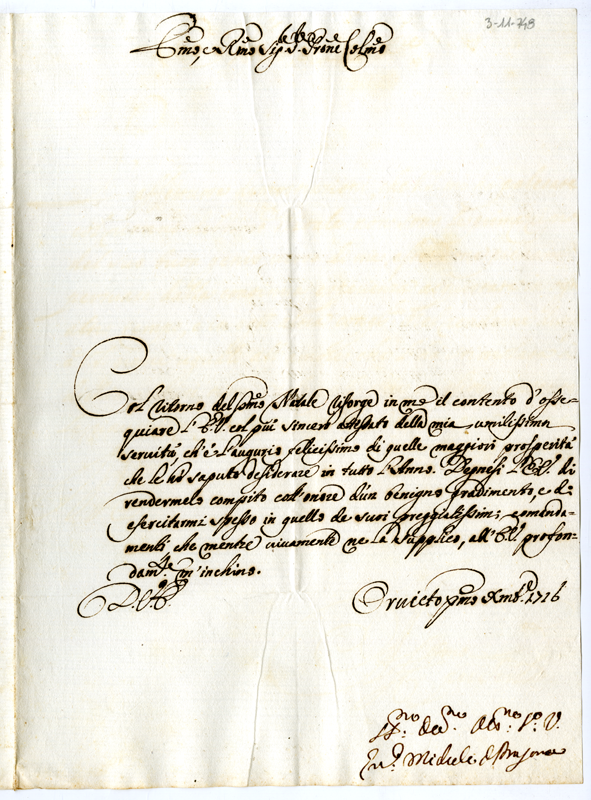 3-11-749
Emo, e Rmo Sig. Sig. Prone Colmo
Col ritorno del Smo Natale risorge in me il contento d'osse-
quiare l'E.V. col più sincero attestato della mia umilissima
servitù, ch'è l'augurio felicissimo di quelle maggiori prosperità
che le hò saputo desiderare in tutto l'Anno. Degnesi l'E.V. di
rendermelo compito coll'onore d'un benigno gradimento, e di
esercitarmi spesso in quello de suoi preggiatissimi comanda-
menti che mentre vivamente ne la supplico, all'E.V. profon-
damte m'inchino.
D.E.V.
Orvieto pmo Xmbre 1716
Devmo
Michele